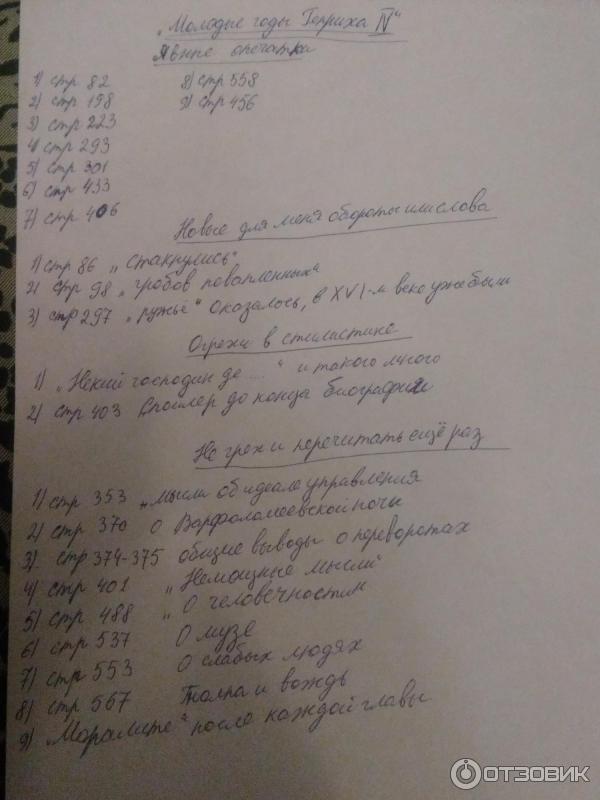 „Молодые годы Генриха IV“
Явные опечатки
1) стр 82
2) стр 198
3) стр 223
4) стр 293
5) стр 301
6) стр 433
7) стр 406
8) стр 558
9) стр 456
Новые для меня обороты или слова
1) стр 86 „стакнулись“
2) стр 98 „гробов повапленных“
3) стр 297 „ружьё“ оказалось, в XVI-м веке уже были
Огрехи в стилистике
1) „Некий господин де ....“ и такого много
2) стр 403 Спойлер до конца биографии
Не грех и перечитать ещё раз
1) стр 353 „Мысли об идеале управления
2) стр 370 О Варфоломеевской ночи
3) стр 374-375 общие выводы о переворотах
4) стр 401 „Немощные мысли“
5) стр 488 „О человечности“
6) стр 537 О музе
7) стр 553 О слабых людях
8) стр 567 Толпа и вождь
9) „Моралите“ после каждой главы
ОТЗОВИК